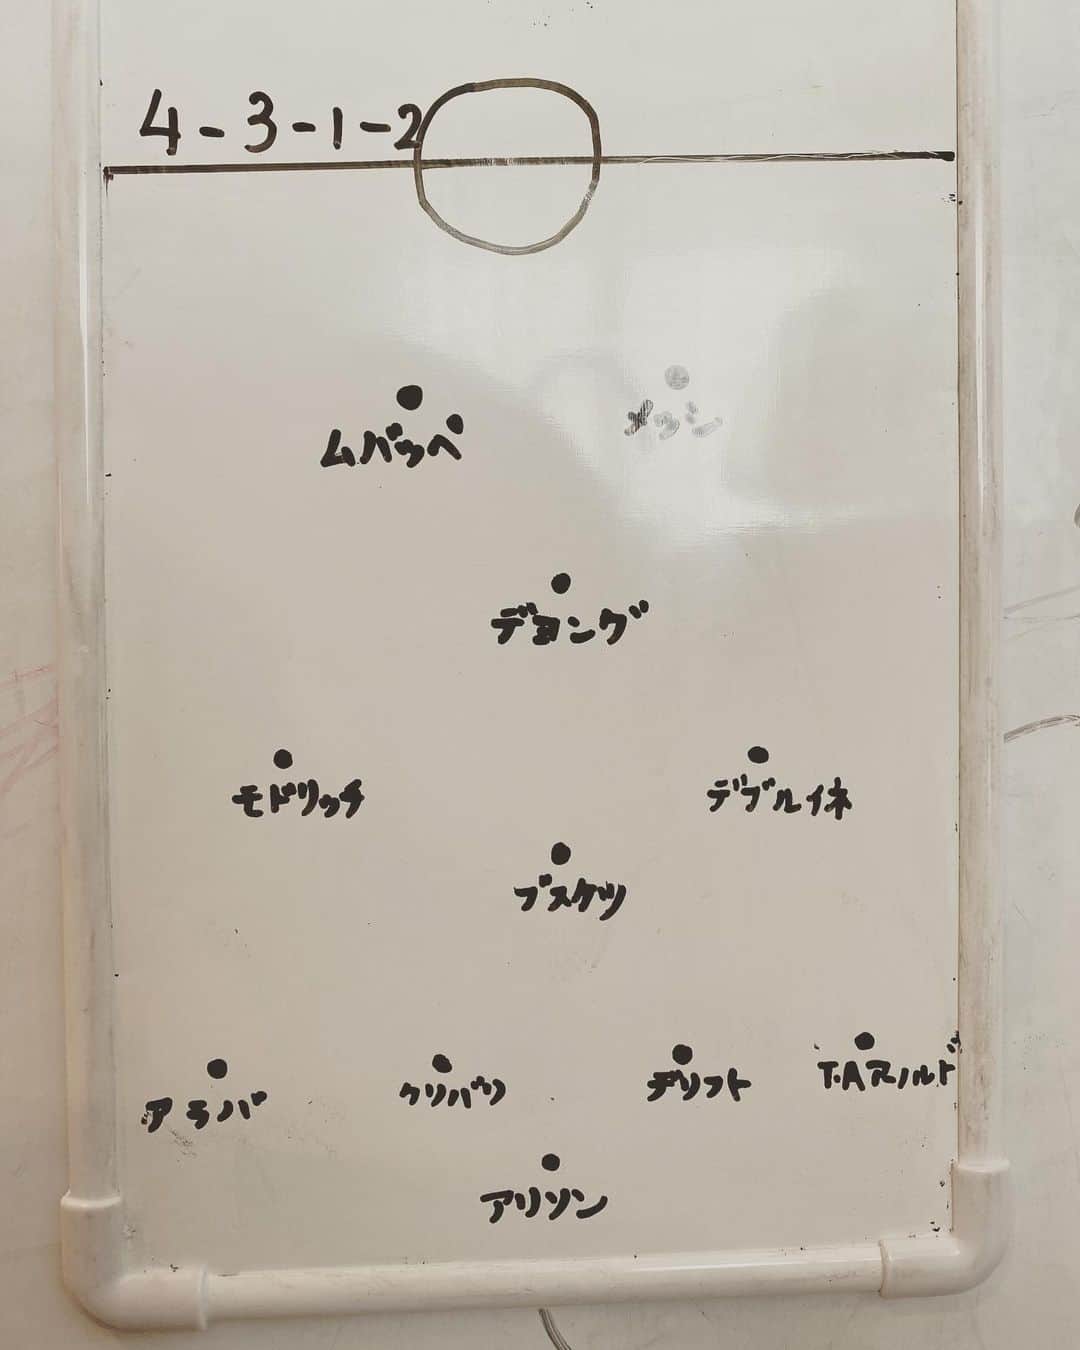 4-3-1-2
ムバッペ
メッシ
デヨング
モドリッチ
デブルイネ
ブスケツ
アラバ
クリバリ
デリフト
T.Aアーノルド
アリソン